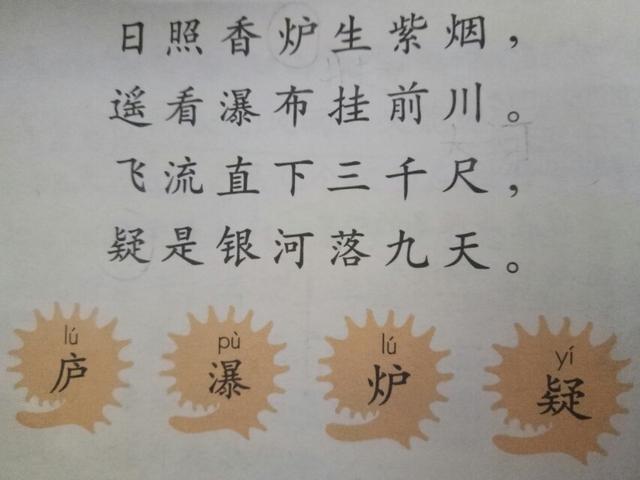 日照香炉生紫烟，
遥看瀑布挂前川。
飞流直下三千尺，
疑是银河落九天。
lú pù lú yí
庐 瀑 炉 疑